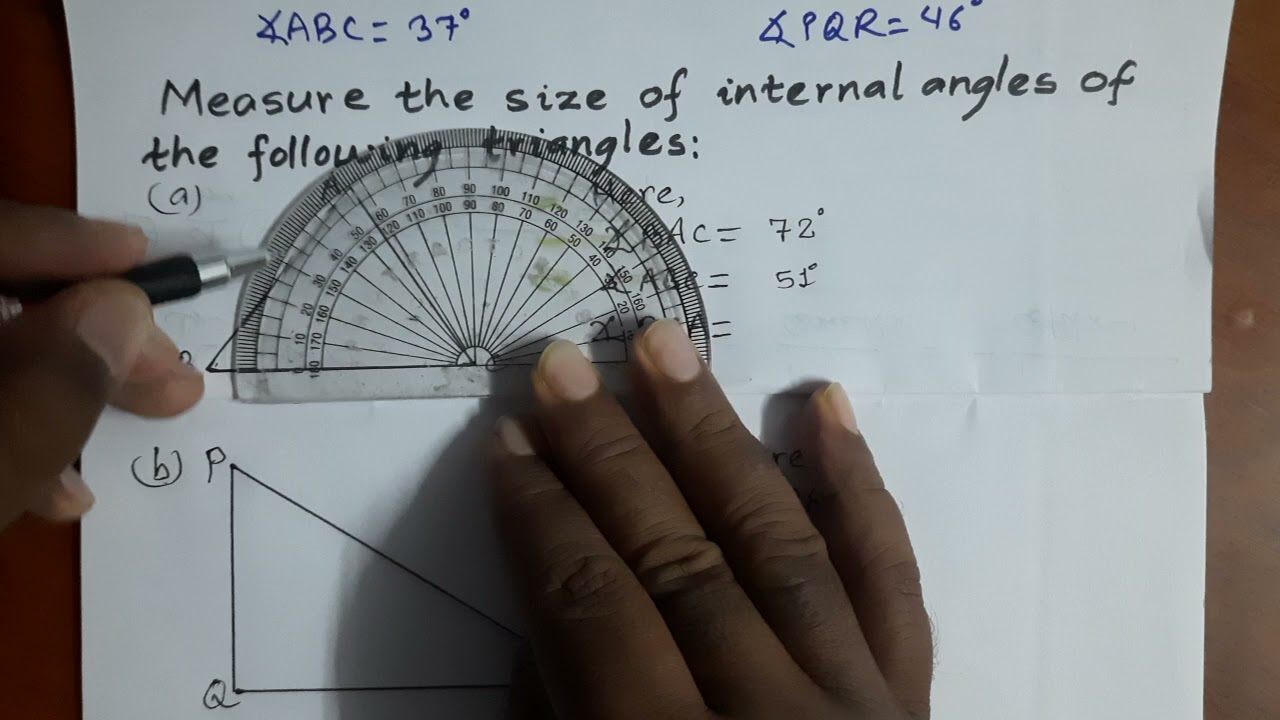 ∡ABC = 37°
∡PQR = 46°
Measure the size of internal angles of
the following triangles:
(a)
AC = 72°
= 51°
=
0 10 20 30 40 50 60 70 80 90 100 110 120 130 150 160
180 170 160 150 140 130 120 110 100 90 80 70 60 50 40 20
(b) P
Q